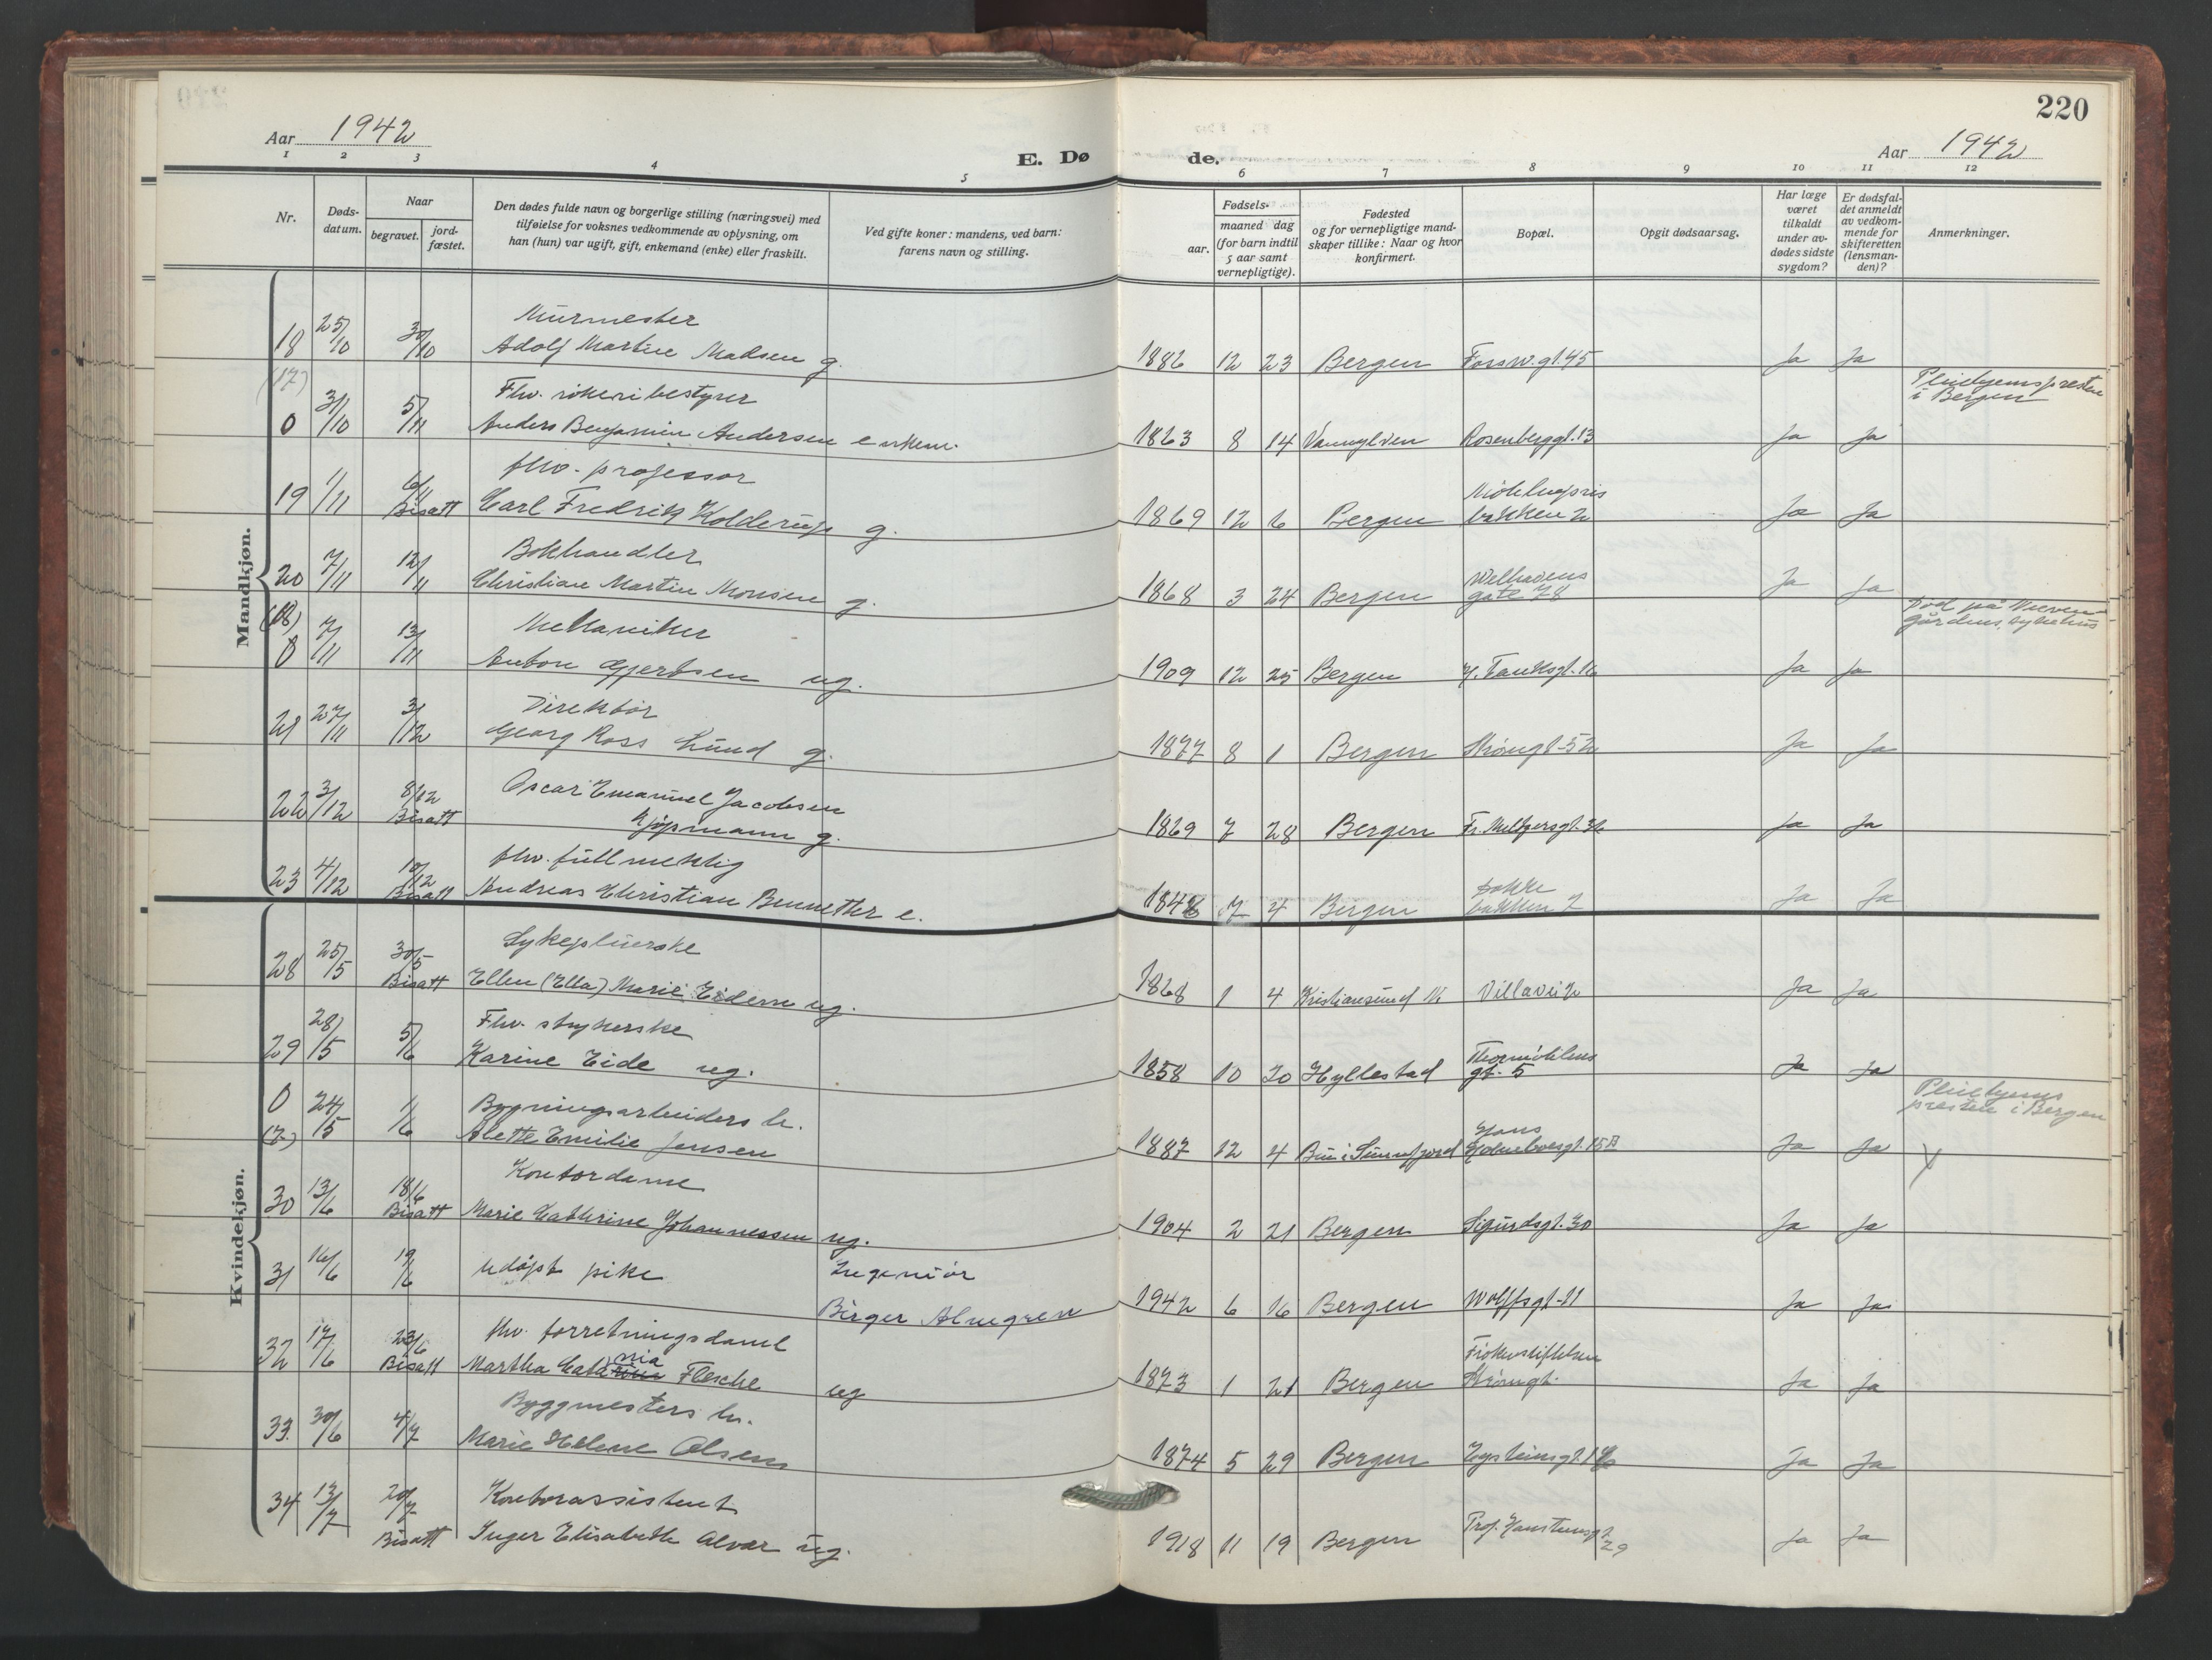 220
Aar 1942
E. Dø
de.
Aar 1942
1 2 3 4 5 6 7 8 9 10 11 12
Nr.
Døds-
datum.
Naar
begravet.
jord-
fæstet.
Den dødes fulde navn og borgerlige stilling (næringsvei) med
tilføielse for voksnes vedkommende av oplysning, om
han (hun) var ugift, gift, enkemand (enke) eller fraskilt.
Ved gifte koner: mandens, ved barn:
farens navn og stilling.
Fødsels-
aar.
maaned dag
(for barn indtil
5 aar samt
vernepligtige).
Fødested
og for vernepligtige mand-
skaper tillike: Naar og hvor
konfirmert.
Bopæl.
Opgit dødsaarsag.
Har læge
været
tilkaldt
under av-
dødes sidste
sygdom?
Er dødsfal-
det anmeldt
av vedkom-
mende for
skifteretten
(lensman-
den)?
Anmerkninger.
Mandkjøn.
Murmester
18 25/10 30/10 Adolf Martin Madsen g. 1882 12 23 Bergen Forsv.gt.45 Ja Ja
(17) Fhv. rökeribestyrer Pleiehjemspresten
i Bergen
0 31/10 5/11 Anders Benjamin Andersen enkem. 1863 8 14 Vannylven Rosenberggt.13 Ja Ja
fhv. professor
19 1/11 6/11 Bisatt Carl Fredrik Kolderup g. 1869 12 6 Bergen Möhlenpris
bakken 2 Ja Ja
Bokhandler
20 7/11 12/11 Christian Martin Monsen g. 1868 3 24 Bergen Welhavens
gate 78 Ja Ja
(18) Mekaniker Död på Neven-
gårdens sykehus
0 7/11 13/11 Anton Gjertsen ug. 1909 12 25 Bergen J. Fauksgt.16 Ja Ja
Direktör
21 27/11 3/12 Georg Ross Lund g. 1877 8 1 Bergen Strömgt.52 Ja Ja
22 3/12 8/12 Bisatt Oscar Emanuel Jacobsen
kjøpmann g. 1869 7 28 Bergen Fr. Meltzersgt.36 Ja Ja
fhv. fullmektig
23 4/12 10/12 Bisatt Andreas Christian Bennetter e. 1846 7 4 Bergen Dokke
bakken 7 Ja Ja
Kvindekjøn.
Sykepleierske
28 25/5 30/5 Bisatt Ellen (Ella) Marie Eidem ug. 1868 1 4 Kristiansund N. Villavei 2 Ja Ja
Fhv. strykerske
29 28/5 5/6 Karine Eide ug. 1858 10 20 Hyllestad Thormöhlens
gt. 5 Ja Ja
0 24/5 1/6 Bygningsarbeiders h. Pleiehjems
presten i Bergen
(7) Alette Emilie Jensen 1887 12 4 Bru i Sunnfjord Hans
Holmboesgt.15B Ja Ja
Kontordame
30 13/6 18/6 Bisatt Marie Cathrine Johannessen ug. 1904 2 21 Bergen Sigurdsgt.30 Ja Ja
31 16/6 19/6 udøpt pike Ingeniör
Birger Almgren 1942 6 16 Bergen Wolffsgt.11 Ja Ja
fhv. forretningsdame
32 17/6 23/6 Bisatt Martha Cathrina Flesche ug 1873 1 21 Bergen
Strömgt. Ja Ja
Byggmesters h.
33. 30/6 4/7 Marie Helene Olsen 1874 5 29 Bergen Eysteinsgt. Ja Ja
34 13/7 20/7 Kontorassistent
Bisatt Inger Elisabeth Alvær ug. 1918 11 19 Bergen Prof. Hansteensgt. 29 Ja Ja